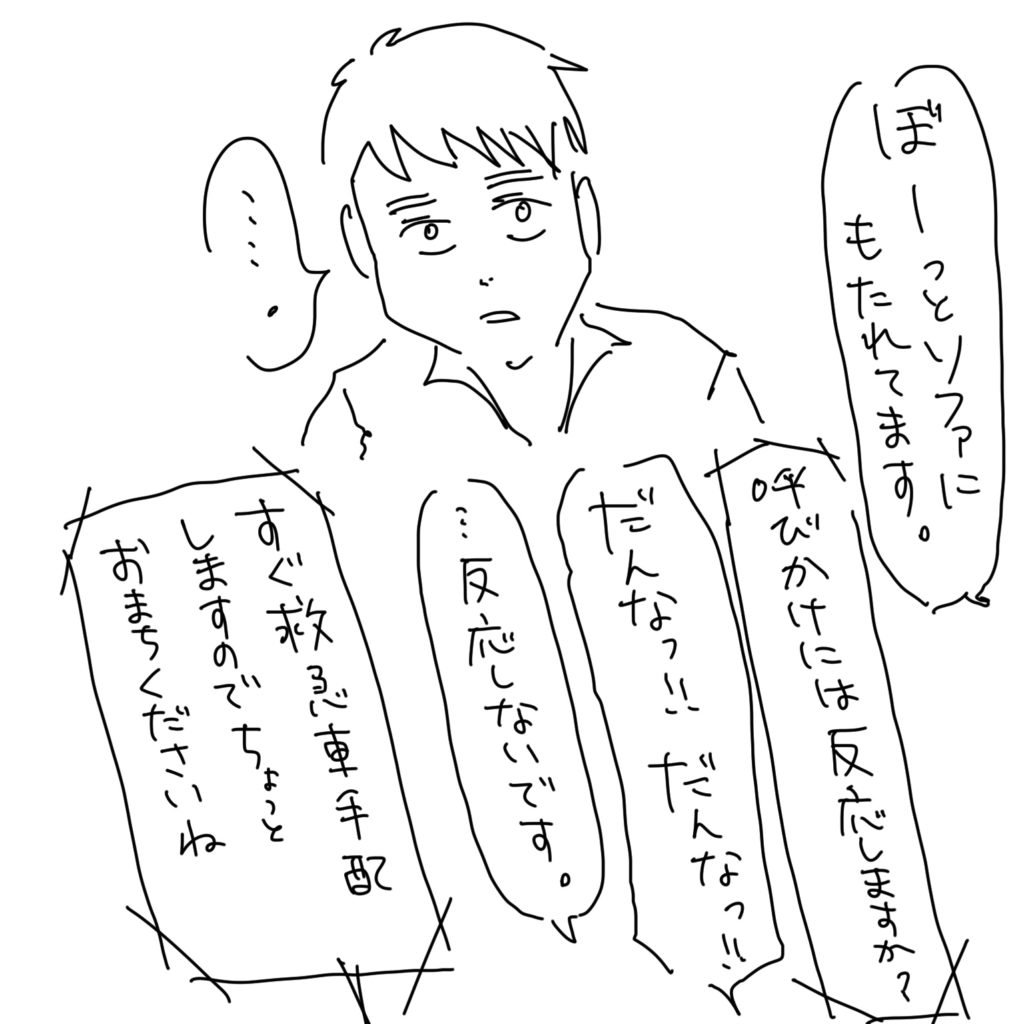 ぼーっとソファに
もたれてます。
呼びかけには反応しますか?
だんなっ!!だんなっ!!
…反応しないです。
……。
すぐ救急車手配
しますのでちょっと
おまちくださいね